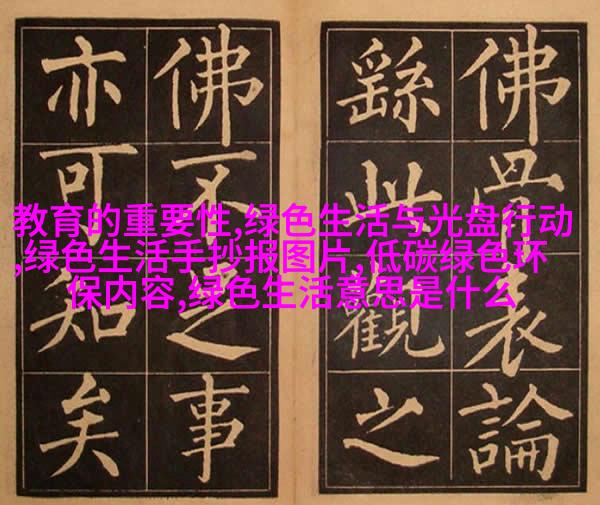 佛骨表論
繇此觀之
佛不足事
亦可知矣
教育的重要性,绿色生活与光盘行动
,绿色生活手抄报图片,低碳绿色环
保内容,绿色生活意思是什么